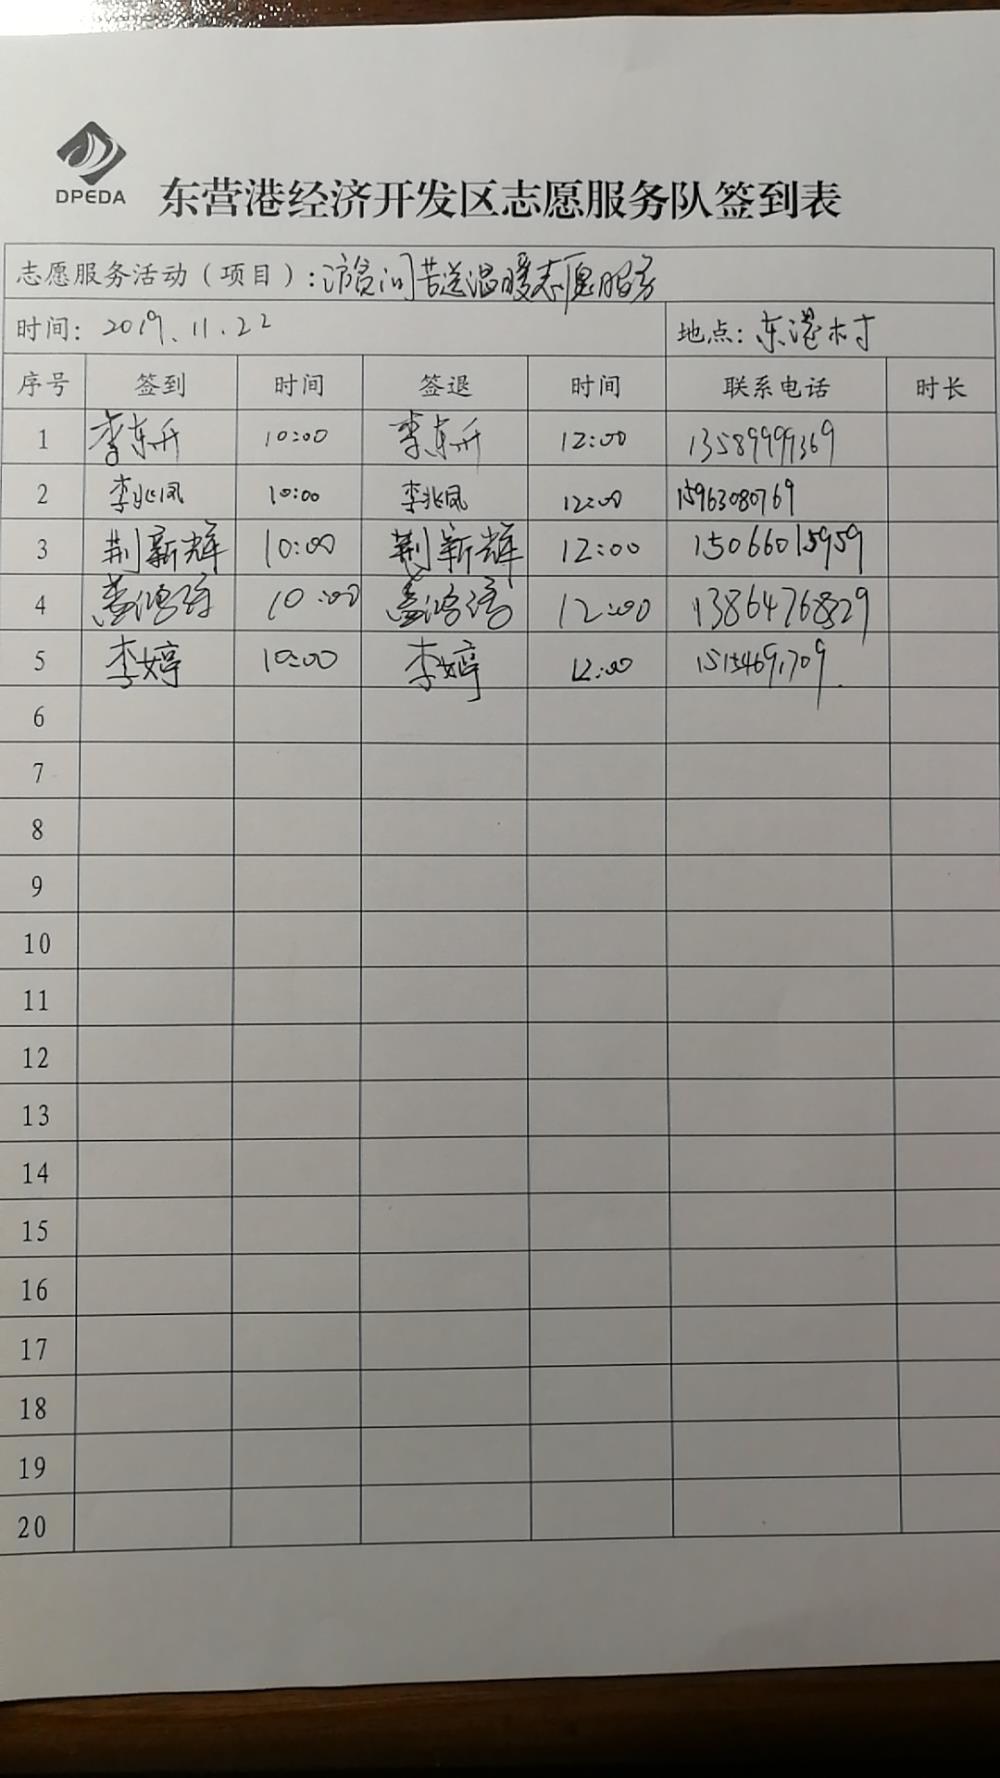 DPEDA
东营港经济开发区志愿服务队签到表
志愿服务活动（项目）：访贫问苦送温暖志愿服务
时间：2019.11.22 地点：东港村
序号 签到 时间 签退 时间 联系电话 时长
1 李东升 10:00 李东升 12:00 13589999369
2 李兆凤 10:00 李兆凤 12:00 15963080769
3 荆新辉 10:00 荆新辉 12:00 15066015959
4 10:00 12:00 13864768829
5 李婷 10:00 李婷 12:00 15154691709
6
7
8
9
10
11
12
13
14
15
16
17
18
19
20